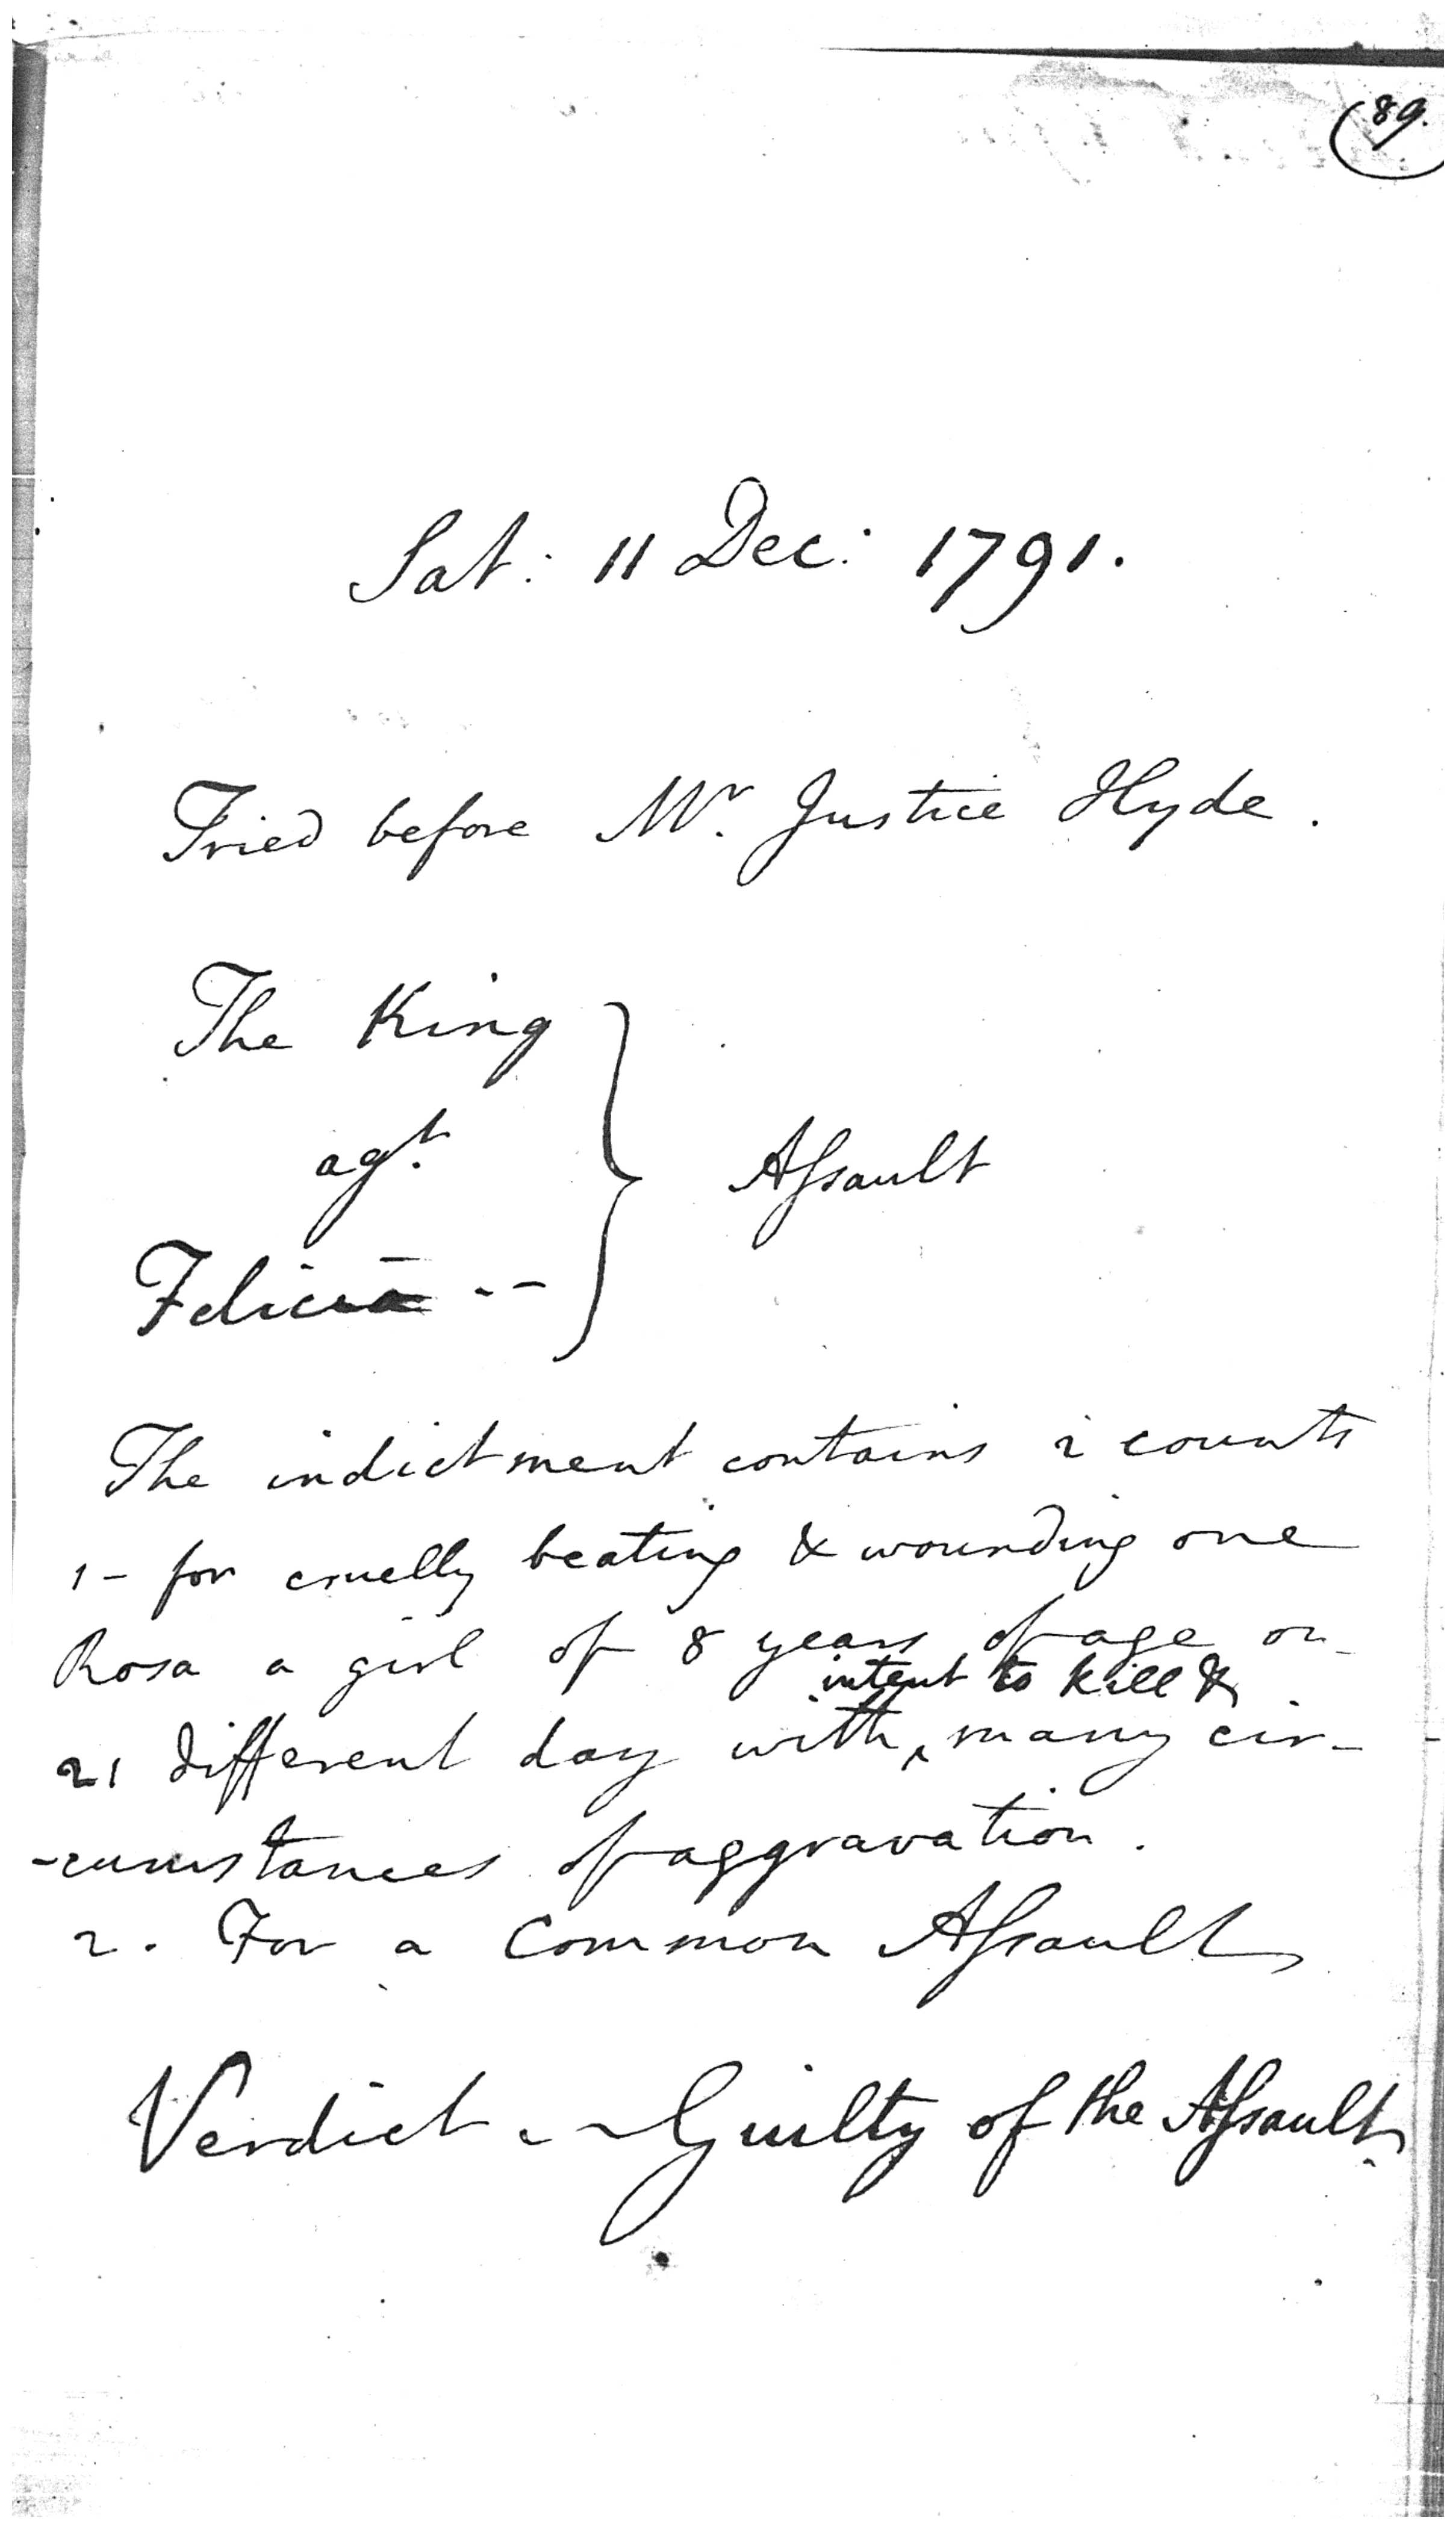 89.
Sat: 11 Dec: 1791.
Tried before Mr. Justice Hyde.
The King
agt.
Assault
Felicia --
The indictment contains 2 counts
1 - for cruelly beating & wounding one
Rosa a girl of 8 years of age on
intent to kill &
21 different day with ^ many cir-
-cumstances of aggravation.
2. For a Common Assault
Verdict - Guilty of the Assault.